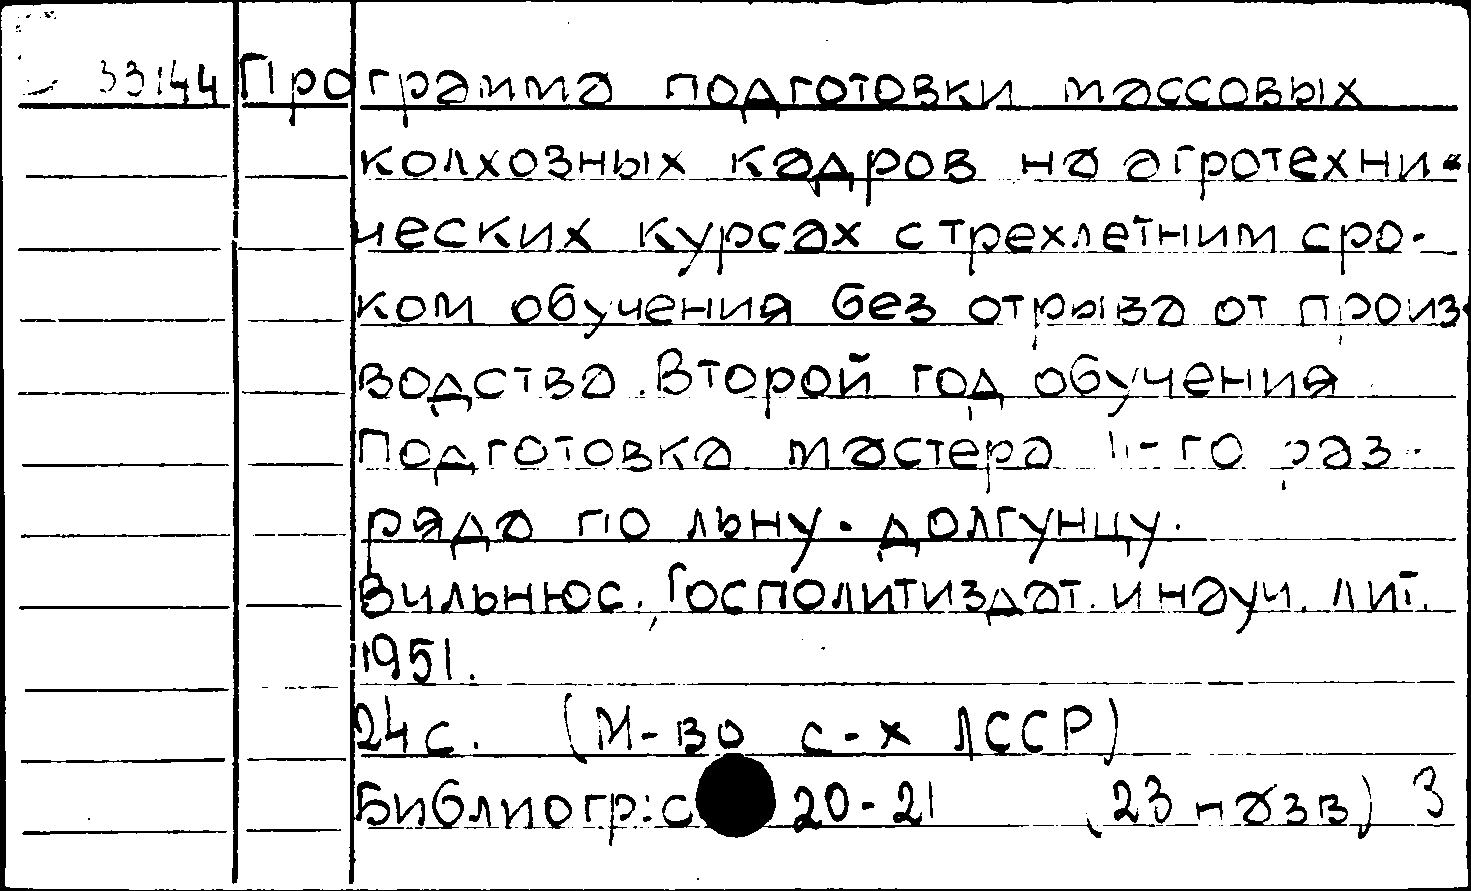 33144 Программа подготовки массовых
колхозных кадров на агротехни-
ческих курсах с трехлетним сро-
ком обучения без отрыва от произ-
водства. Второй год обучения
Подготовка мастера II-го раз-
ряда по льну-долгунцу.
Вильнюс, Госполитиздат. и науч. лит.
1951.
24 с. (М-во с-х ЛССР)
Библиогр: с 20-21 (23 назв) 3